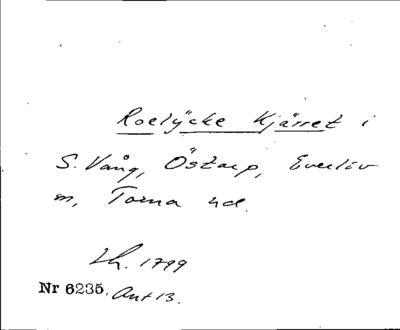 Roelÿcke Kjärret i
S. Vång, Östarp, Everlöv
m, Torna hd.
Lh. 1799
Nr 6235. Ant 13.